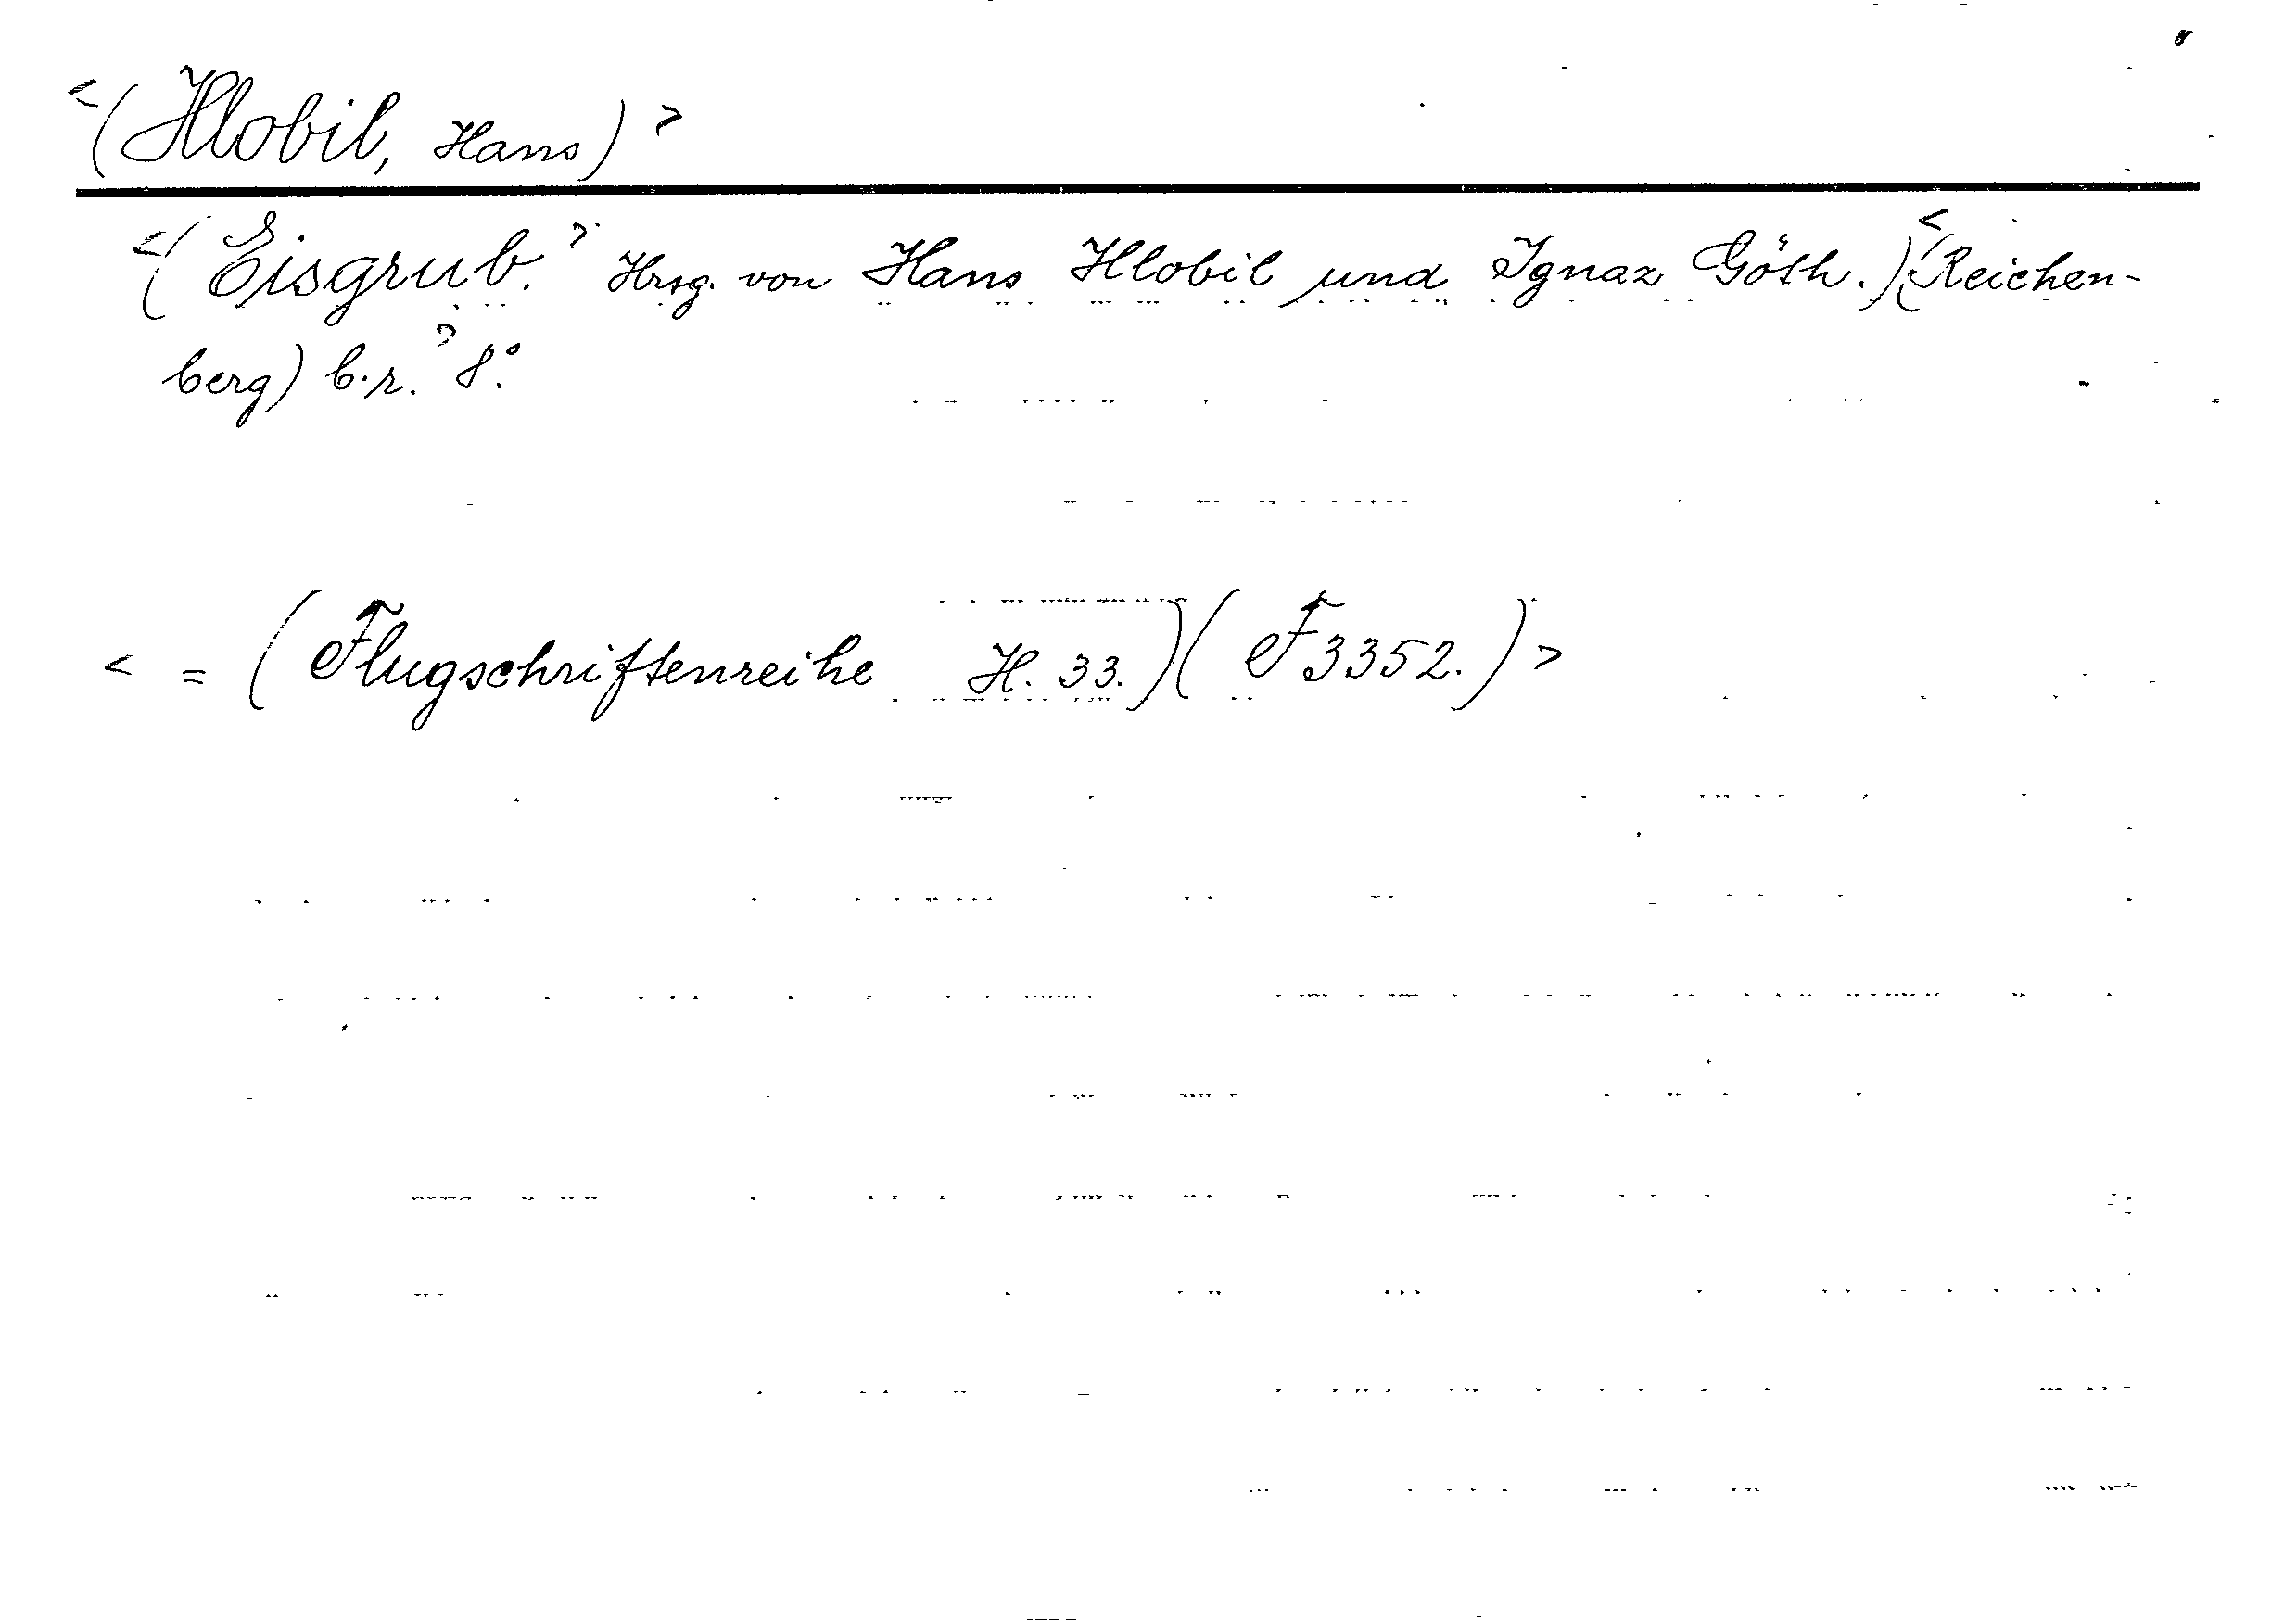 <(Hlobil, Hans)>
<(Eisgrub.> Hrsg. von Hans Hlobil und Ignaz Göth.)<(Reichen-
berg) b.r.> 8°.
< = (Flugschriftenreihe H. 33.)(F3352.)>